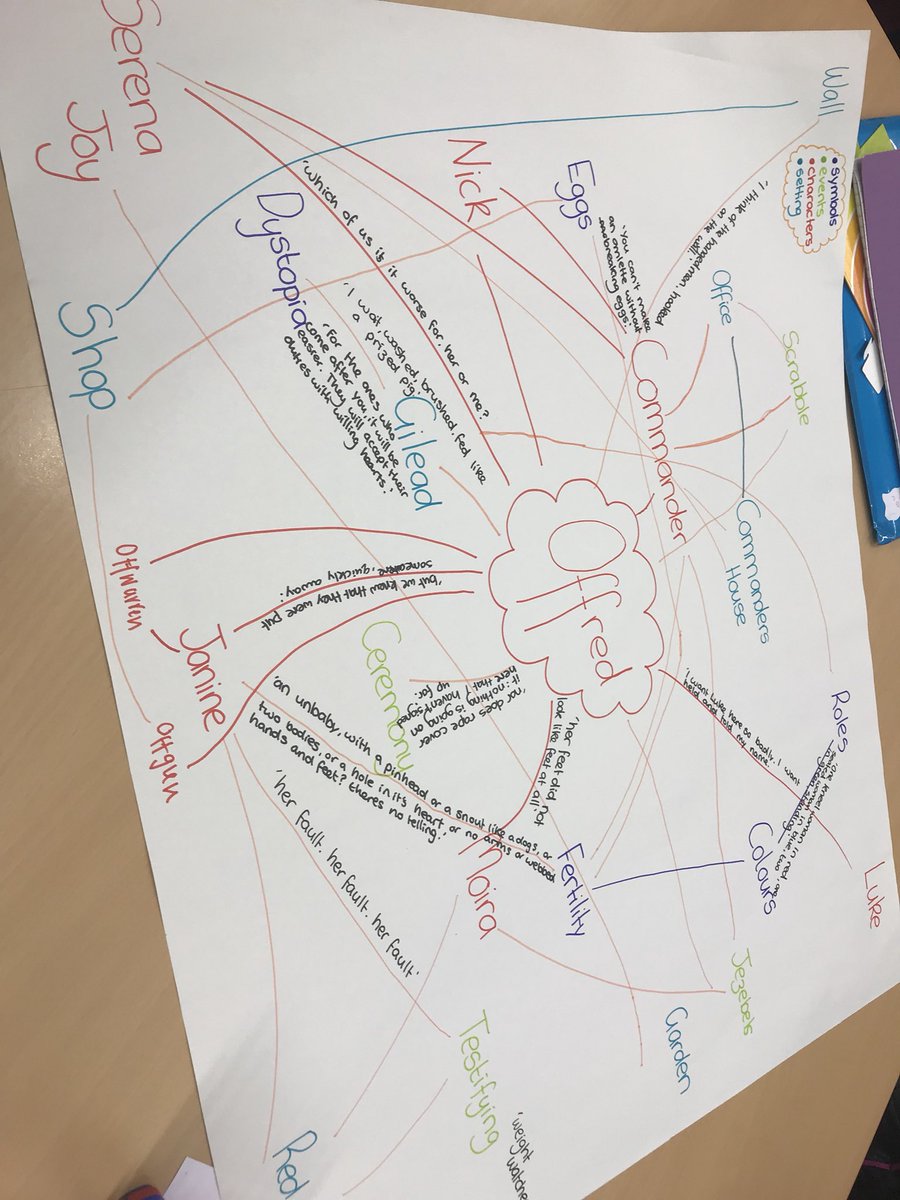 Wall
symbols
events
characters
setting
'I think of the hanged men, hooked
on the wall.'
Office
Scrabble
Commanders
House
Roles
'one kneeling woman in red, one
seated woman in blue, two
green, standing
Luke
Eggs
'You can't make
an omlette without
breaking eggs.'
Commander
'I want Luke here so badly. I want
held and told my name.'
Colours
Jezebels
Nick
Offred
Fertility
Garden
Serena
Joy
'which of us is it worse for, her or me?'
Dystopia
'I wait, washed, brushed, fed like
a prized pig.'
'For the ones who
come after you, it will be
easier. They will accept their
duties with willing hearts.'
Gilead
'nor does rape cover
it: nothing is going on
here that I haven't signed
up for.'
'her feet did not
look like feet at all.'
Ceremony
Moira
Shop
'but we know that they were put
somewhere, quickly away.'
Offwarren
Janine
Offgun
'an unbaby, with a pinhead or a snout like a dogs, or
two bodies, or a hole in its heart, or no arms or webbed
hands and feet? theres no telling.'
'her fault. her fault. her fault'
Testifying
'weight
Red